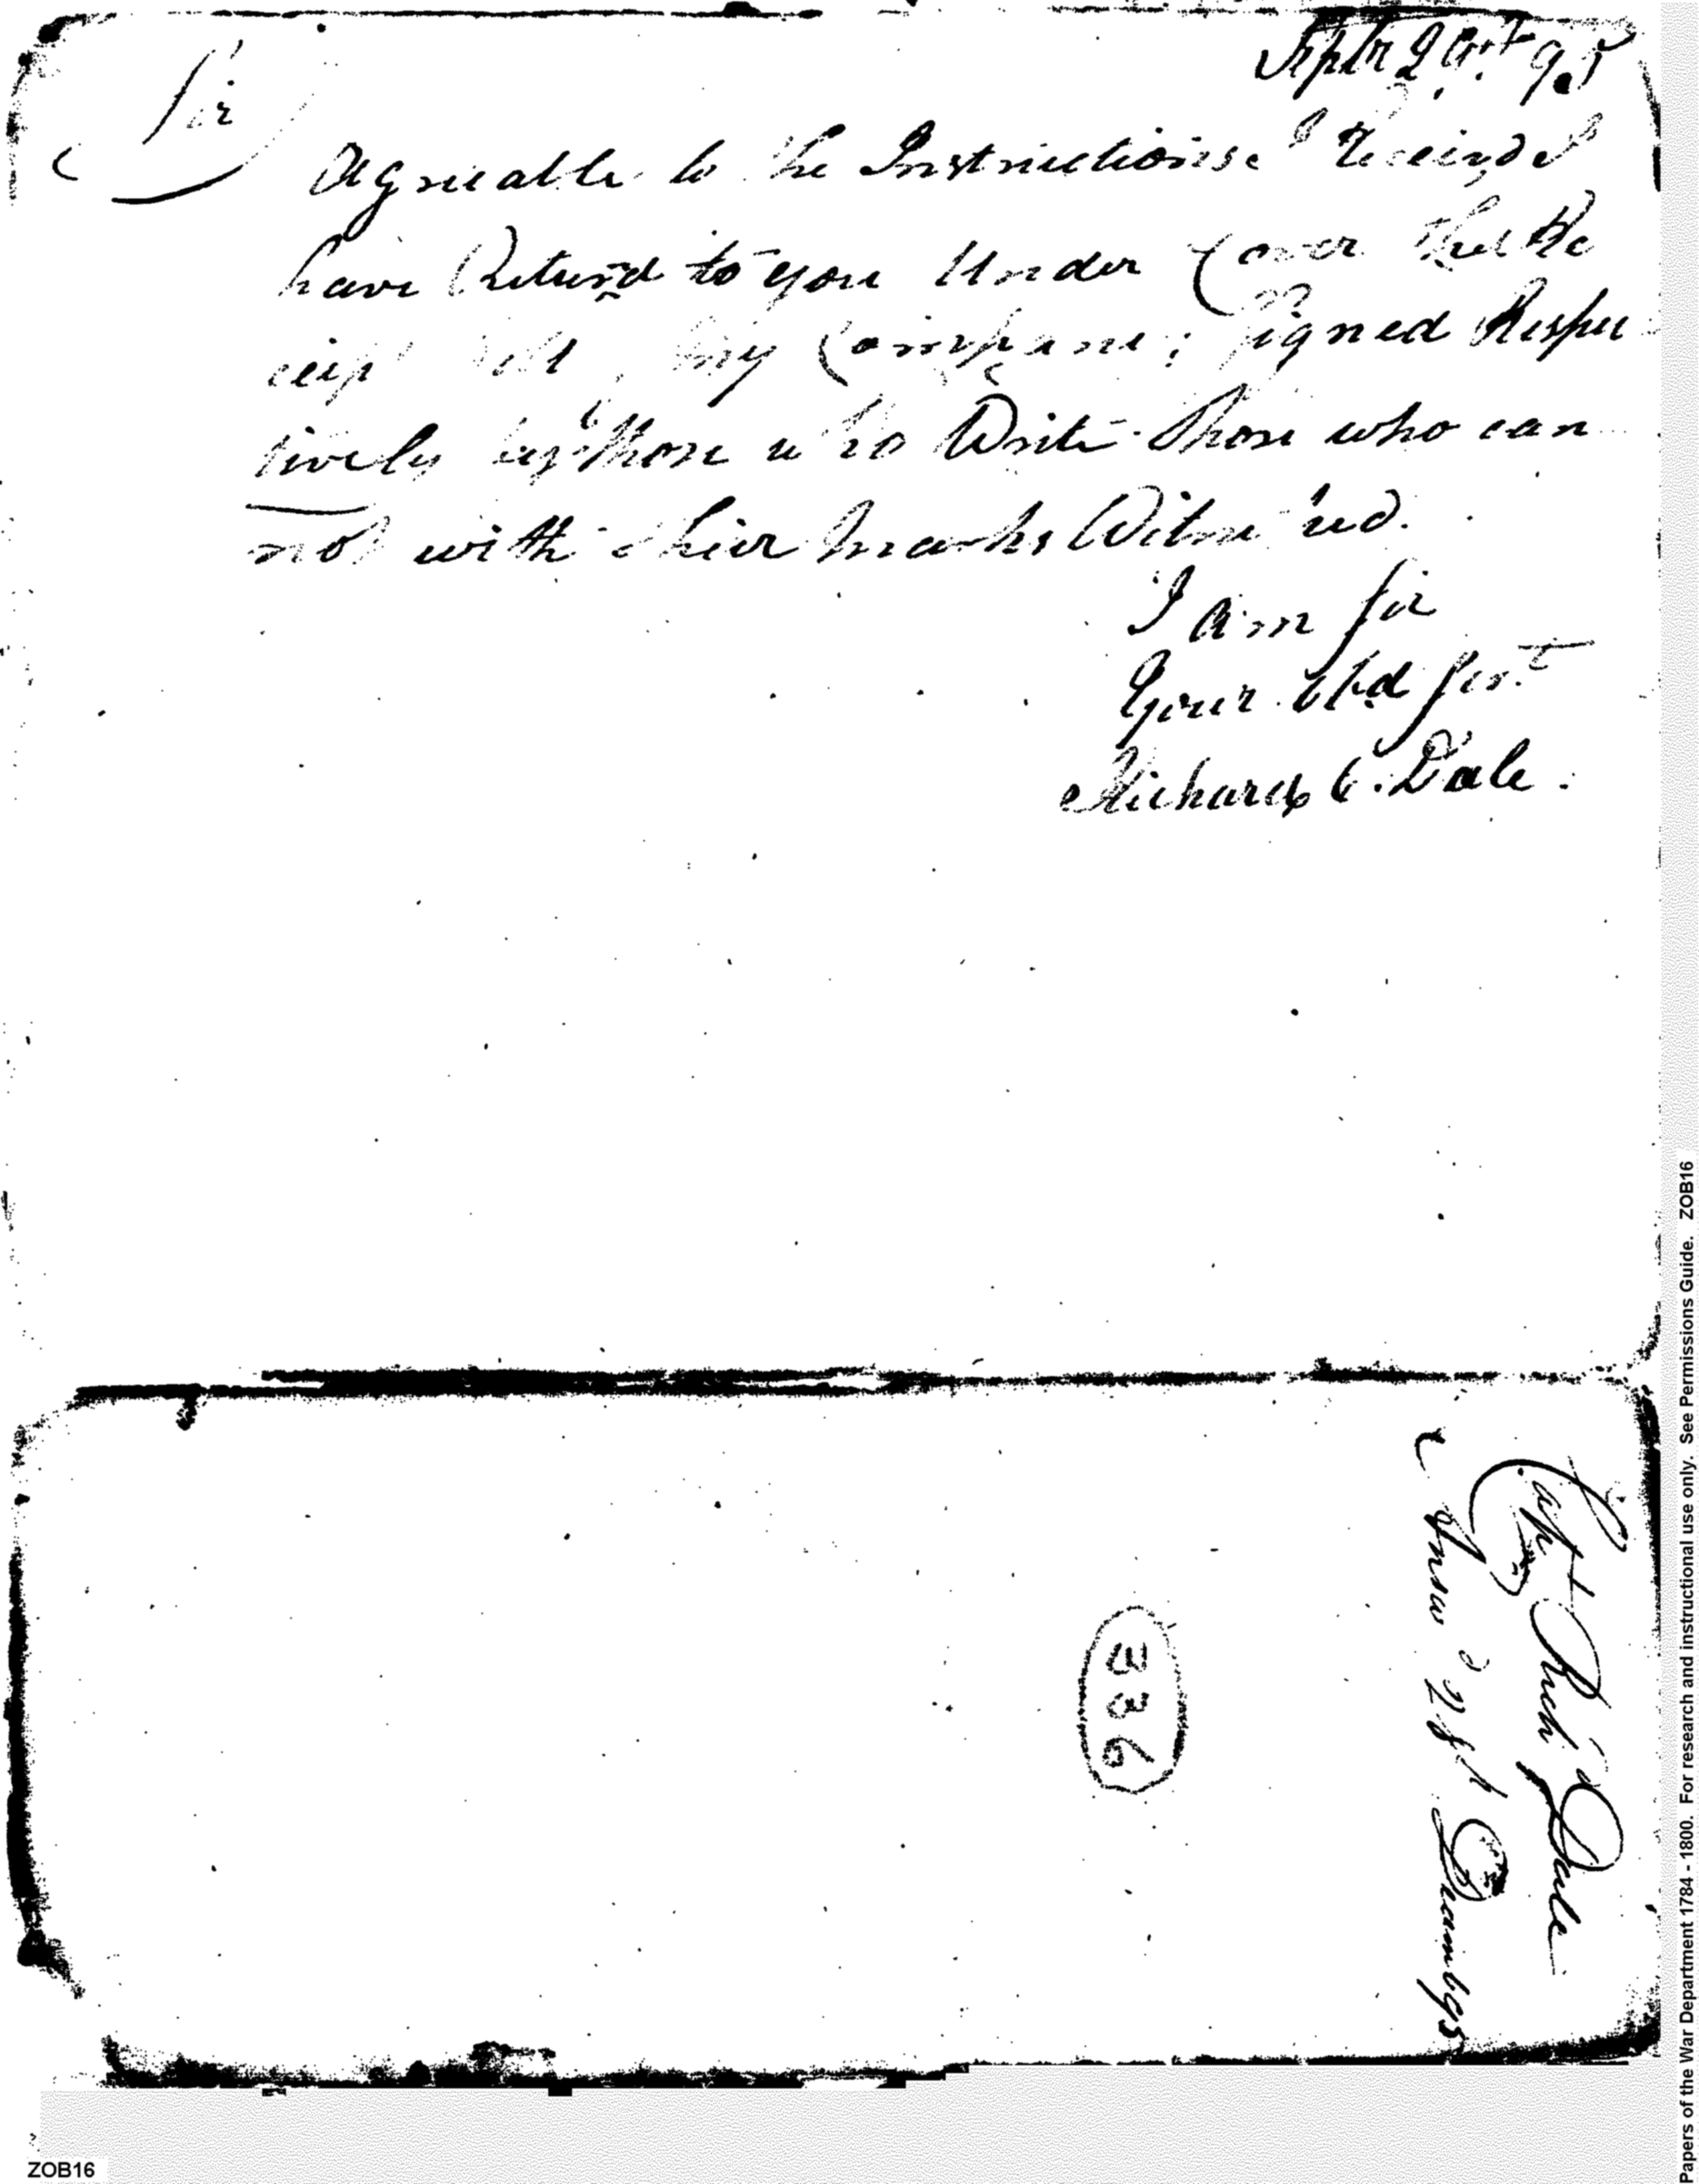 Septr 29th 95
Sir
Agreeable to the Instructions I Receivd I
have Returnd to you Under Cover the Re
ceipt my Company Signed Respec
tively by those who Write Those who can
not with thier marks Witnessed.
I am Sir
Your Obd Sert
Richard C. Dale.
Capt Richd Dale
Answd 28h Decemb 95
336
ZOB16
Papers of the War Department 1784 - 1800. For research and instructional use only. See Permissions Guide. ZOB16